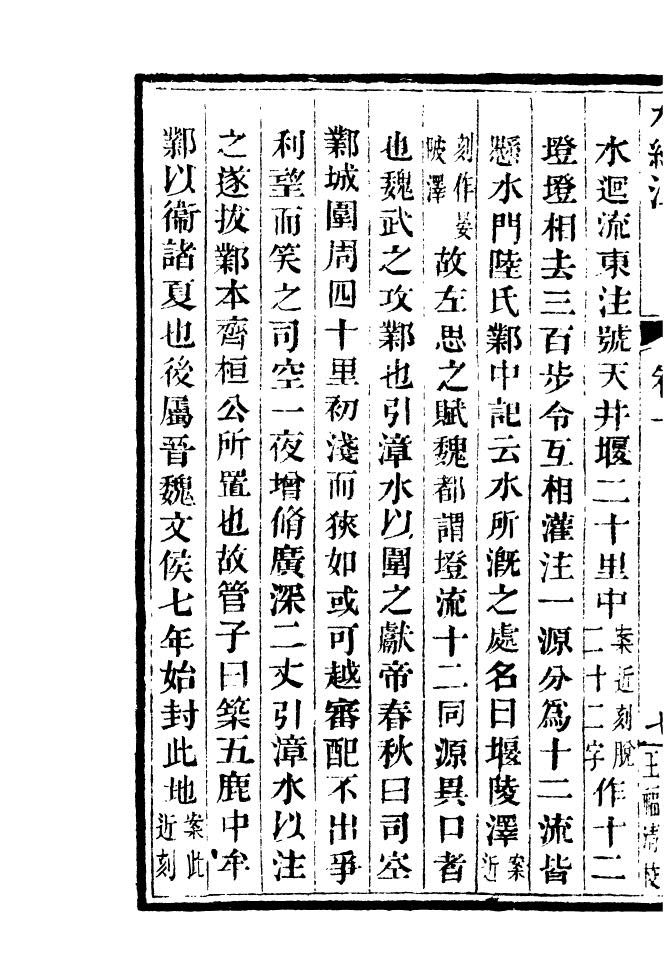 水迴流東注號天井堰二十里中案近刻脫二十二字作十二
墱墱相去三百步令互相灌注一源分爲十二流皆
懸水門陸氏鄴中記云水所溉之處名曰堰陵澤案近
刻作晏陂澤故左思之賦魏都謂墱流十二同源異口者
也魏武之攻鄴也引漳水以圍之獻帝春秋曰司空
鄴城圍周四十里初淺而狹如或可越審配不出爭
利望而笑之司空一夜增脩廣深二丈引漳水以注
之遂拔鄴本齊桓公所置也故管子曰築五鹿中牟
鄴以衞諸夏也後屬晉魏文侯七年始封此地案此近刻